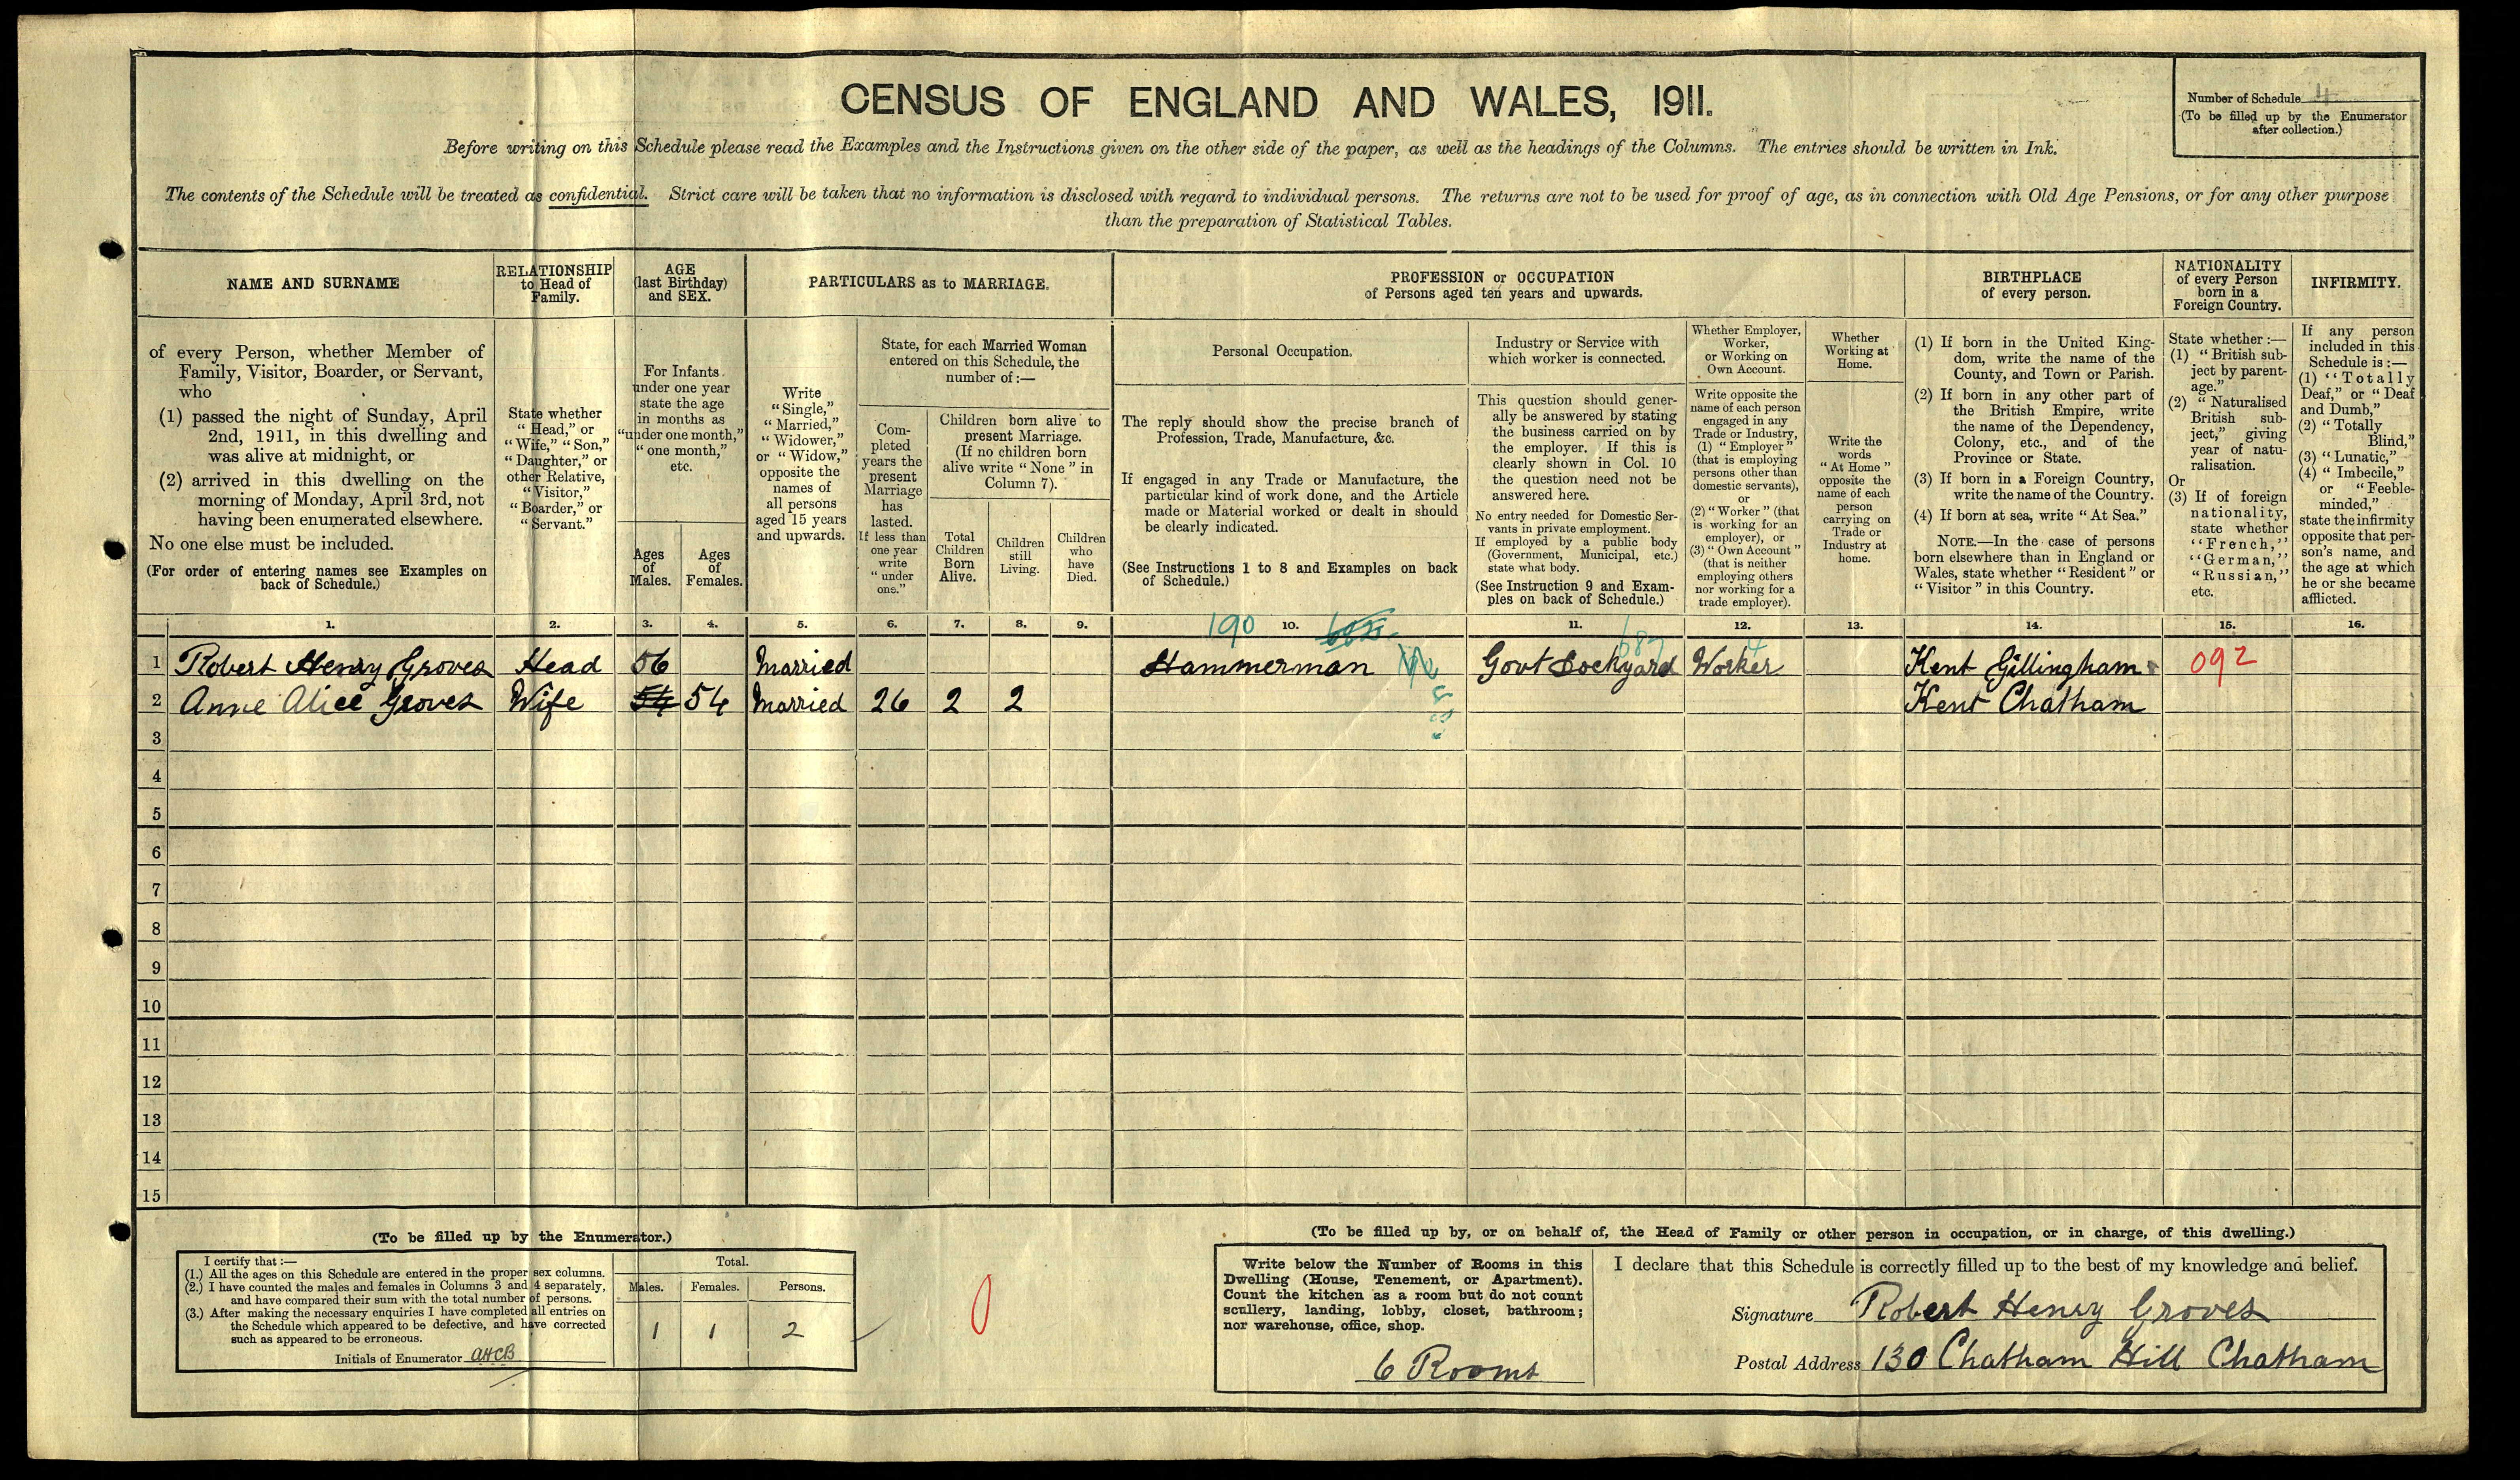 CENSUS OF ENGLAND AND WALES, 1911.
Number of Schedule 4
(To be filled up by the Enumerator
after collection.)
Before writing on this Schedule please read the Examples and the Instructions given on the other side of the paper, as well as the headings of the Columns. The entries should be written in Ink.
The contents of the Schedule will be treated as confidential. Strict care will be taken that no information is disclosed with regard to individual persons. The returns are not to be used for proof of age, as in connection with Old Age Pensions, or for any other purpose
than the preparation of Statistical Tables.
NAME AND SURNAME
of every Person, whether Member of
Family, Visitor, Boarder, or Servant,
who
(1) passed the night of Sunday, April
2nd, 1911, in this dwelling and
was alive at midnight, or
(2) arrived in this dwelling on the
morning of Monday, April 3rd, not
having been enumerated elsewhere.
No one else must be included.
(For order of entering names see Examples on
back of Schedule.)
RELATIONSHIP
to Head of
Family.
State whether
"Head," or
"Wife," "Son,"
"Daughter," or
other Relative,
"Visitor,"
"Boarder," or
"Servant."
AGE
(last Birthday)
and SEX.
For Infants
under one year
state the age
in months as
"under one month,"
"one month,"
etc.
Ages
of
Males.
Ages
of
Females.
PARTICULARS as to MARRIAGE.
Write
"Single,"
"Married,"
"Widower,"
or "Widow,"
opposite the
names of
all persons
aged 15 years
and upwards.
State, for each Married Woman
entered on this Schedule, the
number of :—
Com-
pleted
years the
present
Marriage
has
lasted.
If less than
one year
write
"under
one."
Children born alive to
present Marriage.
(If no children born
alive write "None" in
Column 7).
Total
Children
Born
Alive.
Children
still
Living.
Children
who
have
Died.
PROFESSION or OCCUPATION
of Persons aged ten years and upwards.
Personal Occupation.
The reply should show the precise branch of
Profession, Trade, Manufacture, &c.
If engaged in any Trade or Manufacture, the
particular kind of work done, and the Article
made or Material worked or dealt in should
be clearly indicated.
(See Instructions 1 to 8 and Examples on back
of Schedule.)
Industry or Service with
which worker is connected.
This question should gener-
ally be answered by stating
the business carried on by
the employer. If this is
clearly shown in Col. 10
the question need not be
answered here.
No entry needed for Domestic Ser-
vants in private employment.
If employed by a public body
(Government, Municipal, etc.)
state what body.
(See Instruction 9 and Exam-
ples on back of Schedule.)
Whether Employer,
Worker,
or Working on
Own Account.
Write opposite the
name of each person
engaged in any
Trade or Industry,
(1) "Employer"
(that is employing
persons other than
domestic servants),
or
(2) "Worker" (that
is working for an
employer), or
(3) "Own Account"
(that is neither
employing others
nor working for a
trade employer).
Whether
Working at
Home.
Write the
words
"At Home"
opposite the
name of each
person
carrying on
Trade or
Industry at
home.
BIRTHPLACE
of every person.
(1) If born in the United King-
dom, write the name of the
County, and Town or Parish.
(2) If born in any other part of
the British Empire, write
the name of the Dependency,
Colony, etc., and of the
Province or State.
(3) If born in a Foreign Country,
write the name of the Country.
(4) If born at sea, write "At Sea."
NOTE.—In the case of persons
born elsewhere than in England or
Wales, state whether "Resident" or
"Visitor" in this Country.
NATIONALITY
of every Person
born in a
Foreign Country.
State whether :—
(1) "British sub-
ject by parent-
age."
(2) "Naturalised
British sub-
ject," giving
year of natu-
ralisation.
Or
(3) If of foreign
nationality,
state whether
"French,"
"German,"
"Russian,"
etc.
INFIRMITY.
If any person
included in this
Schedule is :—
(1) "Totally
Deaf," or "Deaf
and Dumb,"
(2) "Totally
Blind,"
(3) "Lunatic,"
(4) "Imbecile,"
or "Feeble-
minded,"
state the infirmity
opposite that per-
son's name, and
the age at which
he or she became
afflicted.
1. 2. 3. 4. 5. 6. 7. 8. 9. 190 10. 11. 687 12. 4 13. 14. 15. 16.
1 Robert Henry Groves Head 56 Married Hammerman Govt Dockyard Worker Kent Gillingham 092
2 Anne Alice Groves Wife 54 54 Married 26 2 2 Kent Chatham
3
4
5
6
7
8
9
10
11
12
13
14
15
(To be filled up by the Enumerator.)
I certify that :—
(1.) All the ages on this Schedule are entered in the proper sex columns.
(2.) I have counted the males and females in Columns 3 and 4 separately,
and have compared their sum with the total number of persons.
(3.) After making the necessary enquiries I have completed all entries on
the Schedule which appeared to be defective, and have corrected
such as appeared to be erroneous.
Initials of Enumerator AHCB
Total.
Males. Females. Persons.
1 1 2
0
(To be filled up by, or on behalf of, the Head of Family or other person in occupation, or in charge, of this dwelling.)
Write below the Number of Rooms in this
Dwelling (House, Tenement, or Apartment).
Count the kitchen as a room but do not count
scullery, landing, lobby, closet, bathroom;
nor warehouse, office, shop.
6 Rooms
I declare that this Schedule is correctly filled up to the best of my knowledge and belief.
Signature Robert Henry Groves
Postal Address 130 Chatham Hill Chatham